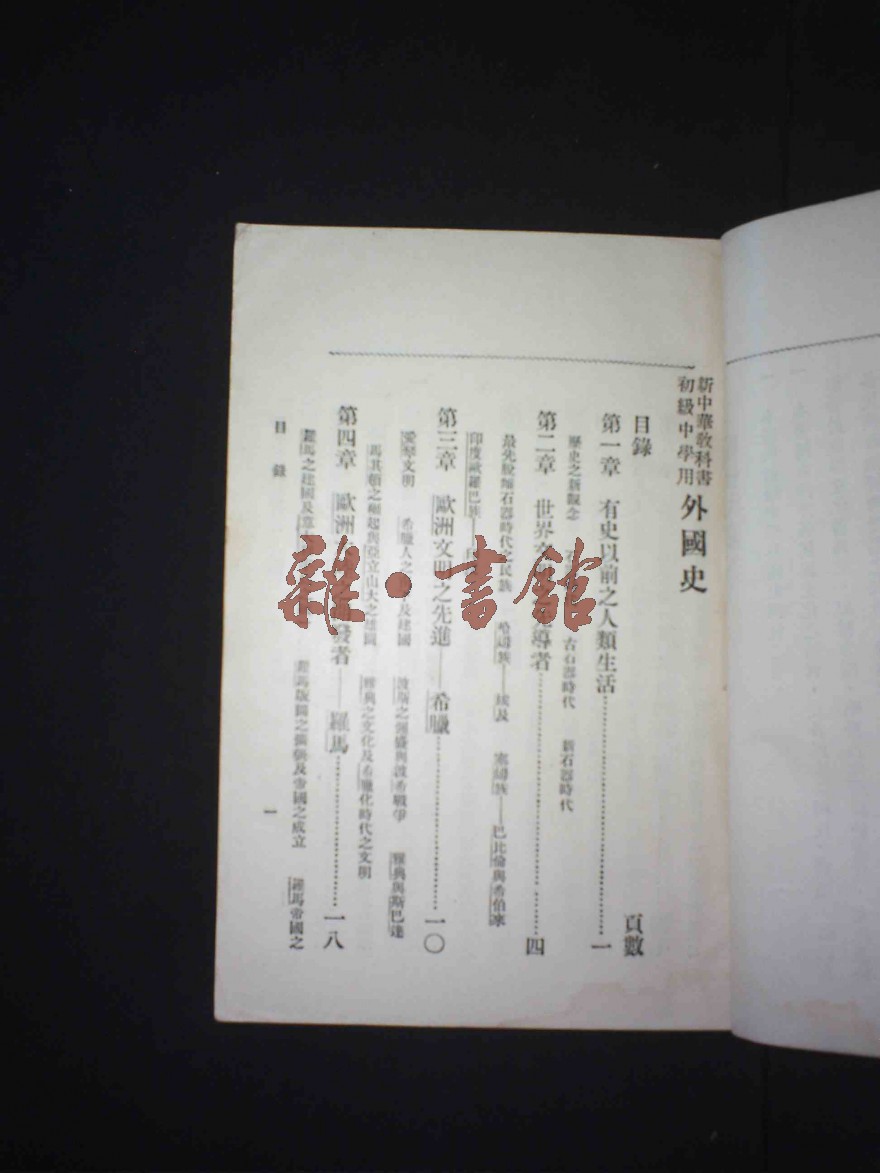 新中華教科書
初級中學用
外國史
目錄
頁數
第一章 有史以前之人類生活 一
歷史之新觀念 古石器時代 新石器時代
第二章 世界 先導者 四
最先脫離石器時代之民族 埃及 巴比倫與希伯來
印度歐羅巴族
第三章 歐洲文明之先進——希臘 一〇
愛琴文明 希臘人之 及建國 波斯之強盛與波希戰爭 雅典與斯巴達
馬其頓之崛起與亞立山大之建國 雅典之文化及希臘化時代之文明
第四章 歐洲 發者——羅馬 一八
羅馬之建國及 羅馬版圖之擴張及帝國之成立 羅馬帝國之
目錄
一
雜·書館